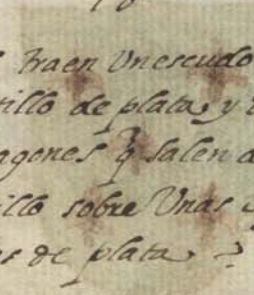 traen Un escudo
tillo de plata, y
agenes q̃ salen d
illo sobre Unas
es de plata